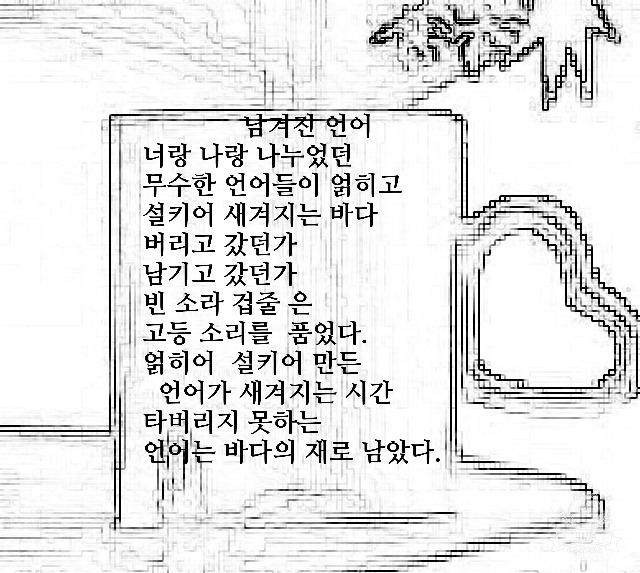 남겨진 언어
너랑 나랑 나누었던
무수한 언어들이 얽히고
설키어 새겨지는 바다
버리고 갔던가
남기고 갔던가
빈 소라 겁줄 은
고등 소리를 품었다.
얽히어 설키어 만든
언어가 새겨지는 시간
타버리지 못하는
언어는 바다의 재로 남았다.